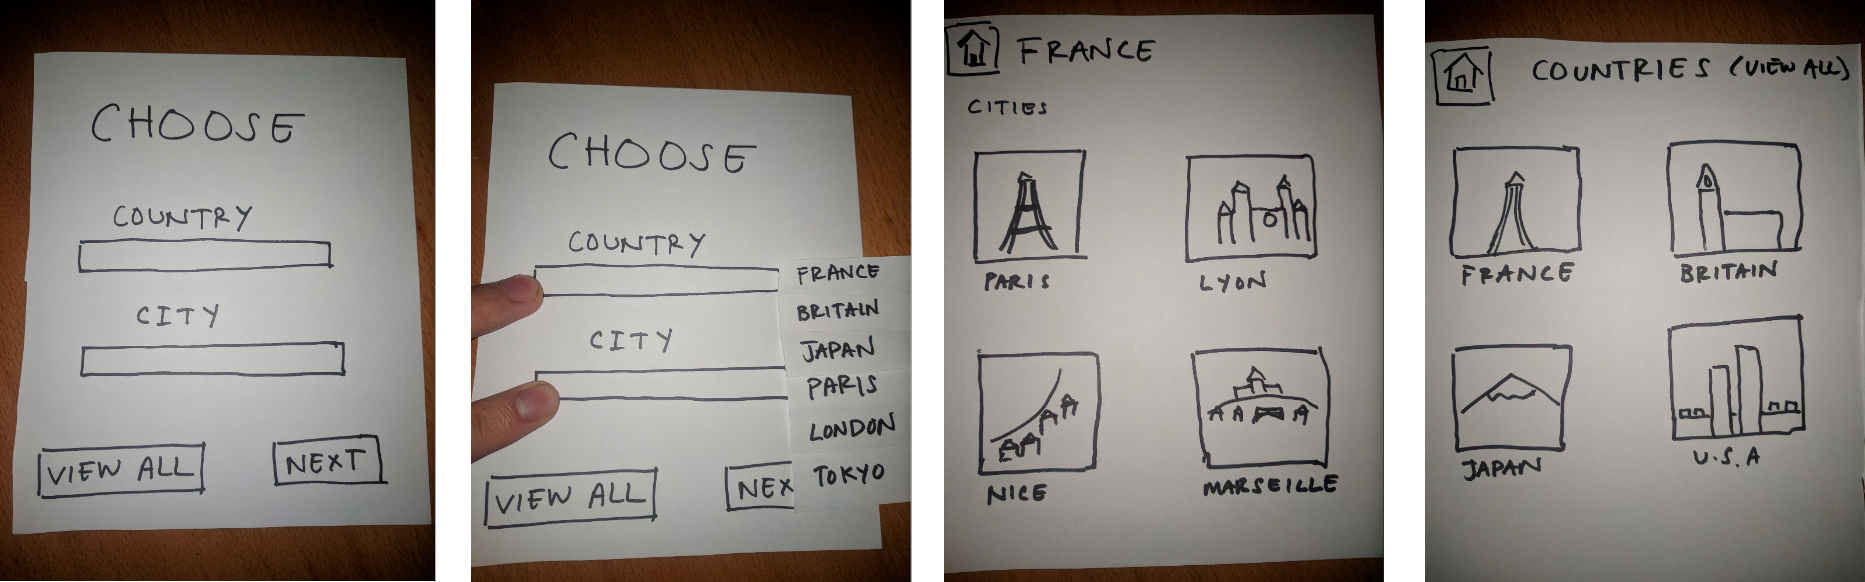 CHOOSE
COUNTRY
CITY
VIEW ALL
NEXT
CHOOSE
COUNTRY
CITY
VIEW ALL
NEX
FRANCE
BRITAIN
JAPAN
PARIS
LONDON
TOKYO
FRANCE
CITIES
PARIS
LYON
NICE
MARSEILLE
COUNTRIES (VIEW ALL)
FRANCE
BRITAIN
JAPAN
U.S.A